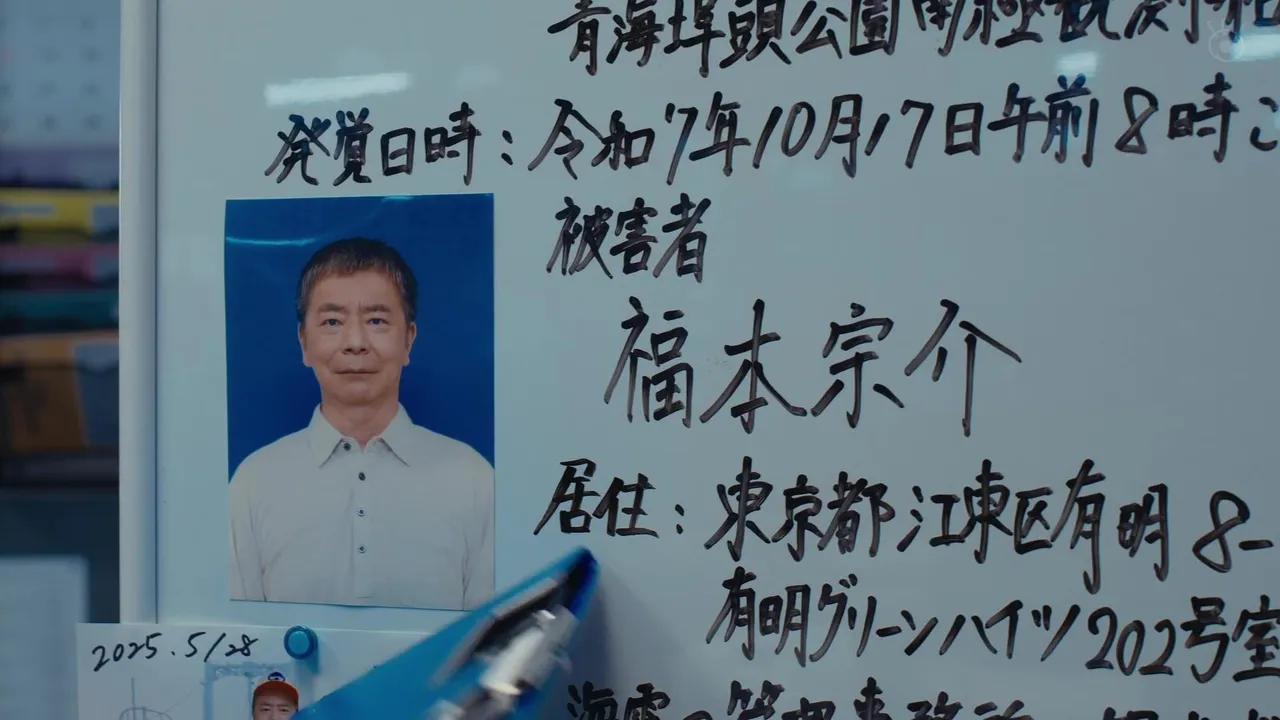 青海埠頭公園南極観測
発覚日時：令和7年10月17日午前8時ご
被害者
福本宗介
居住：東京都江東区有明8-
有明グリーンハイツ202号室
2025.5/28